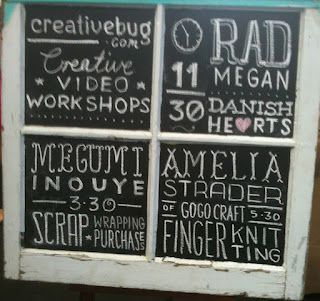 creativebug
.com
Creative
VIDEO
WORKSHOPS
RAD
11 MEGAN
30 DANISH
HEARTS
MEGUMI
INOUYE
3·30
SCRAP WRAPPING
PURCHASES
AMELIA
STRADER
OF GOGO CRAFT 5·30
FINGER KNIT
TING